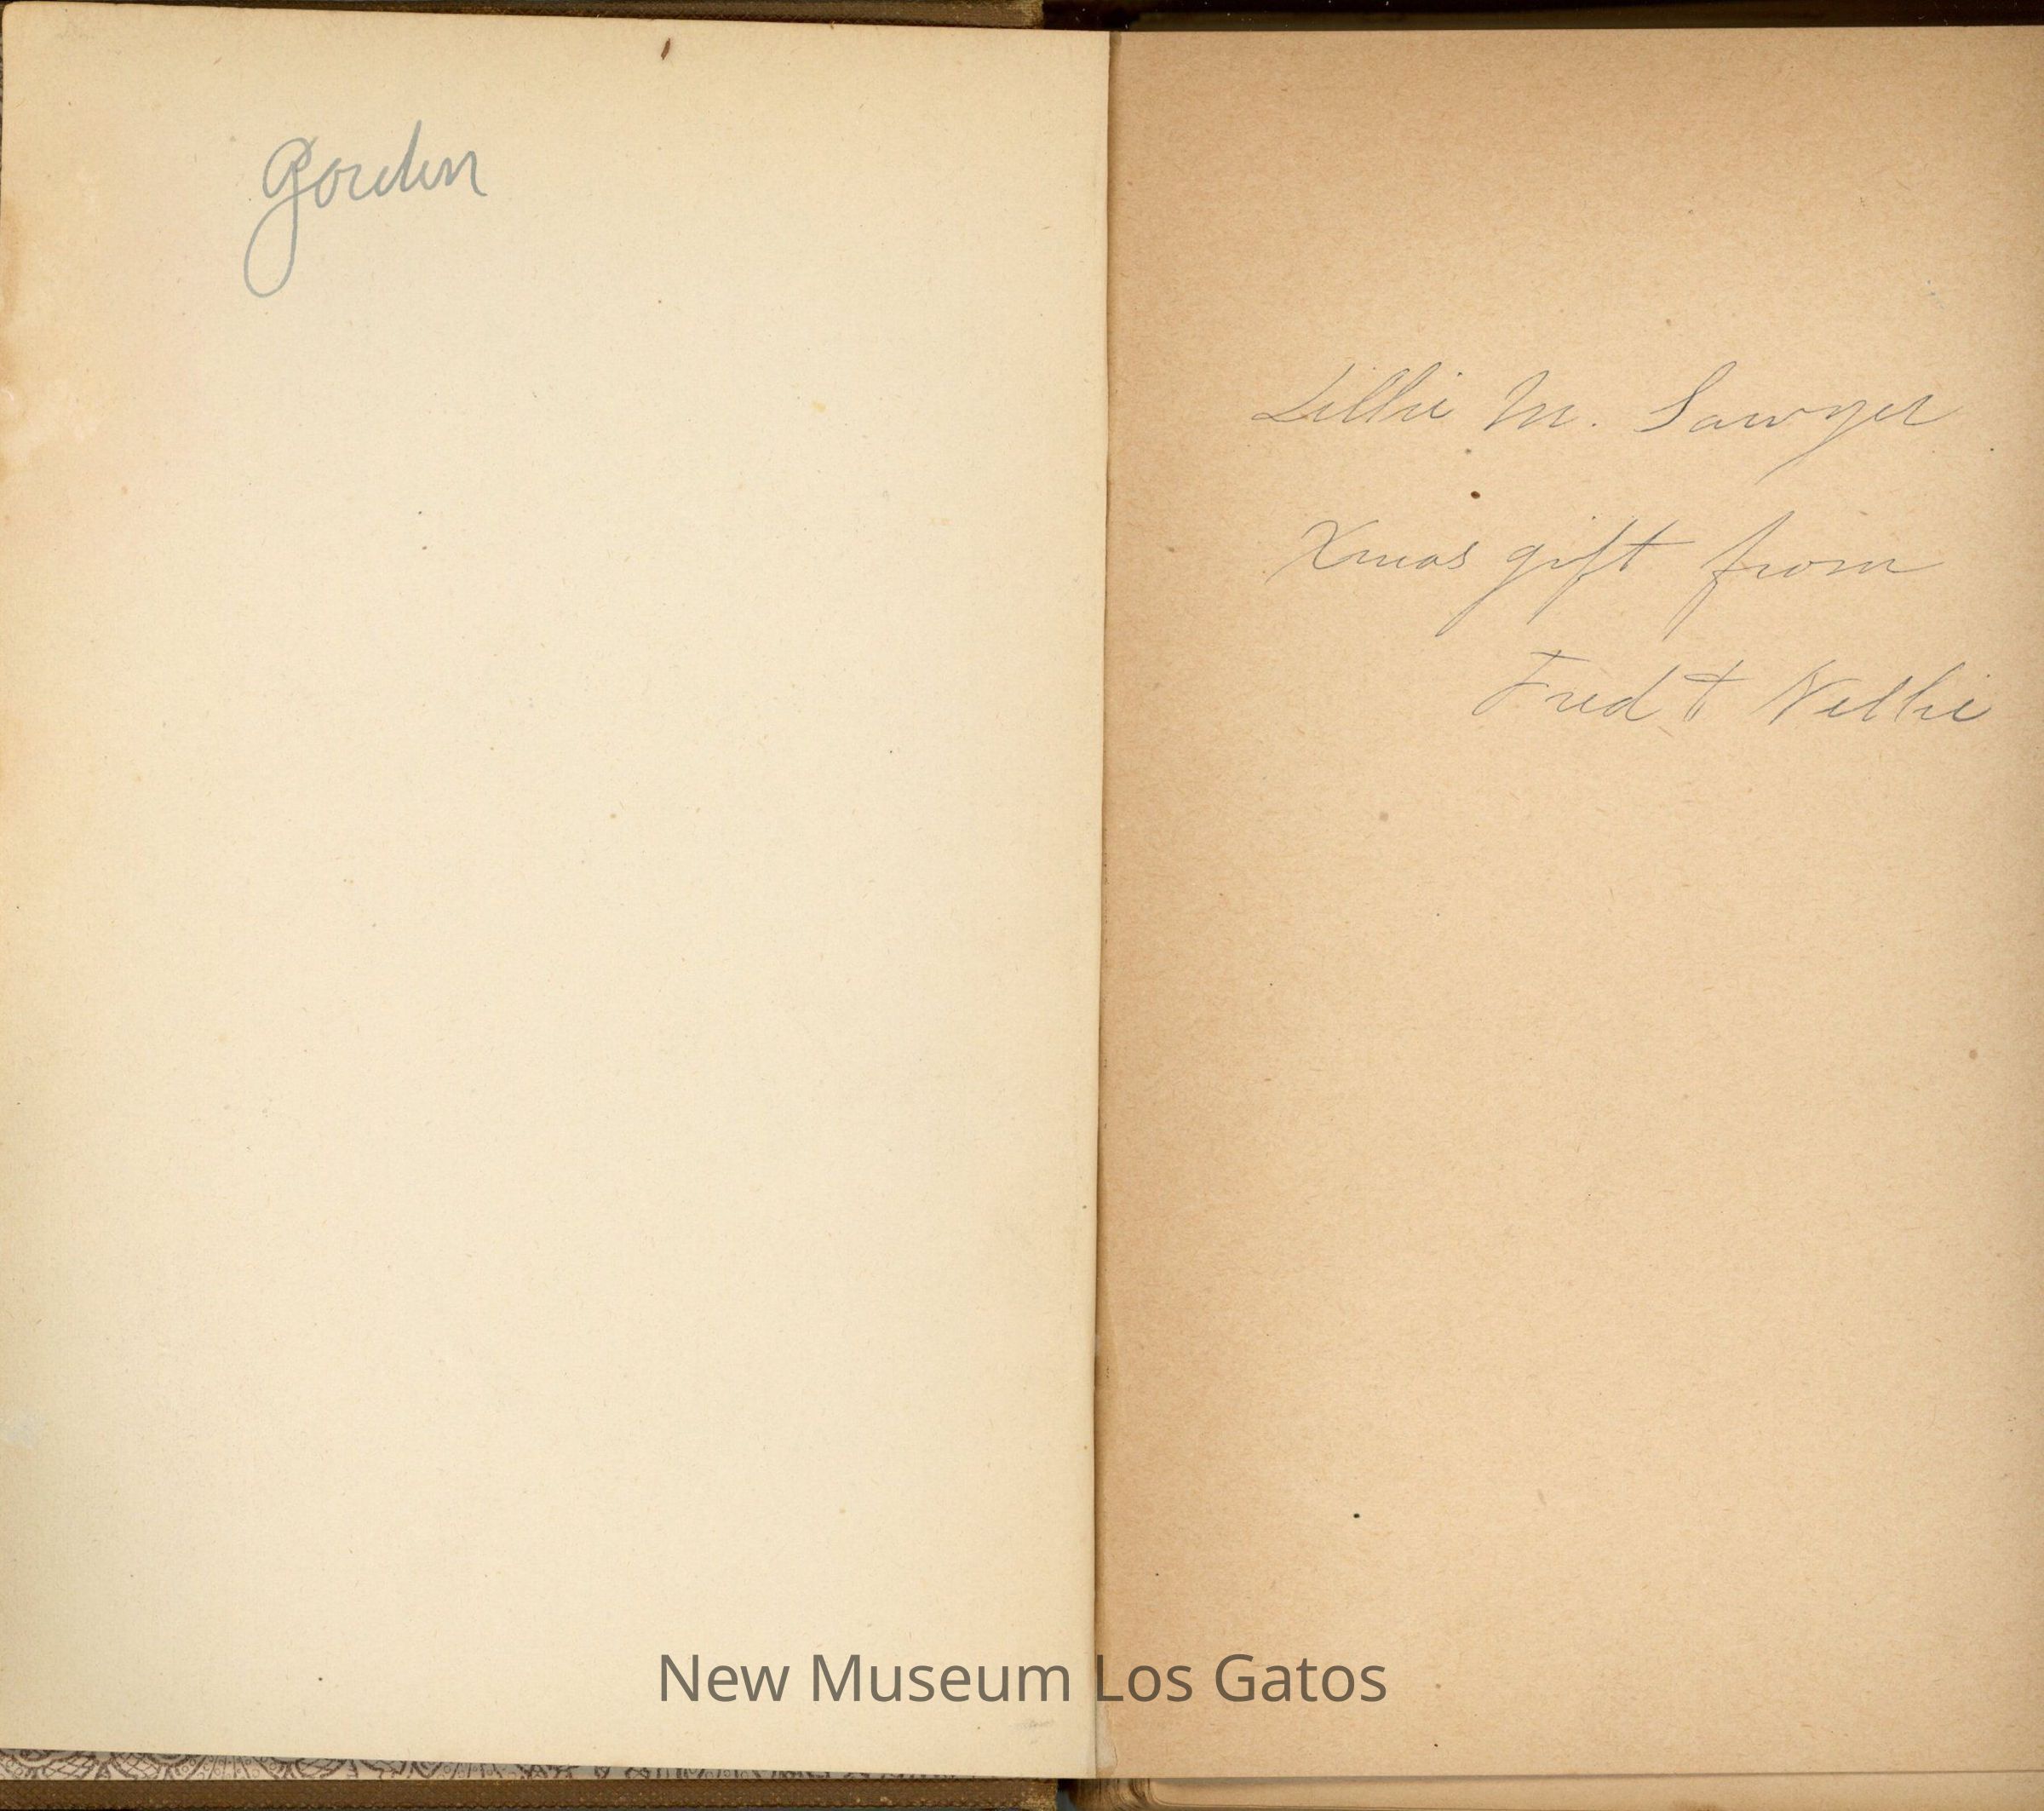 Gorden
Lillie M. Sawyer
Xmas gift from
Fred & Nellie
New Museum Los Gatos